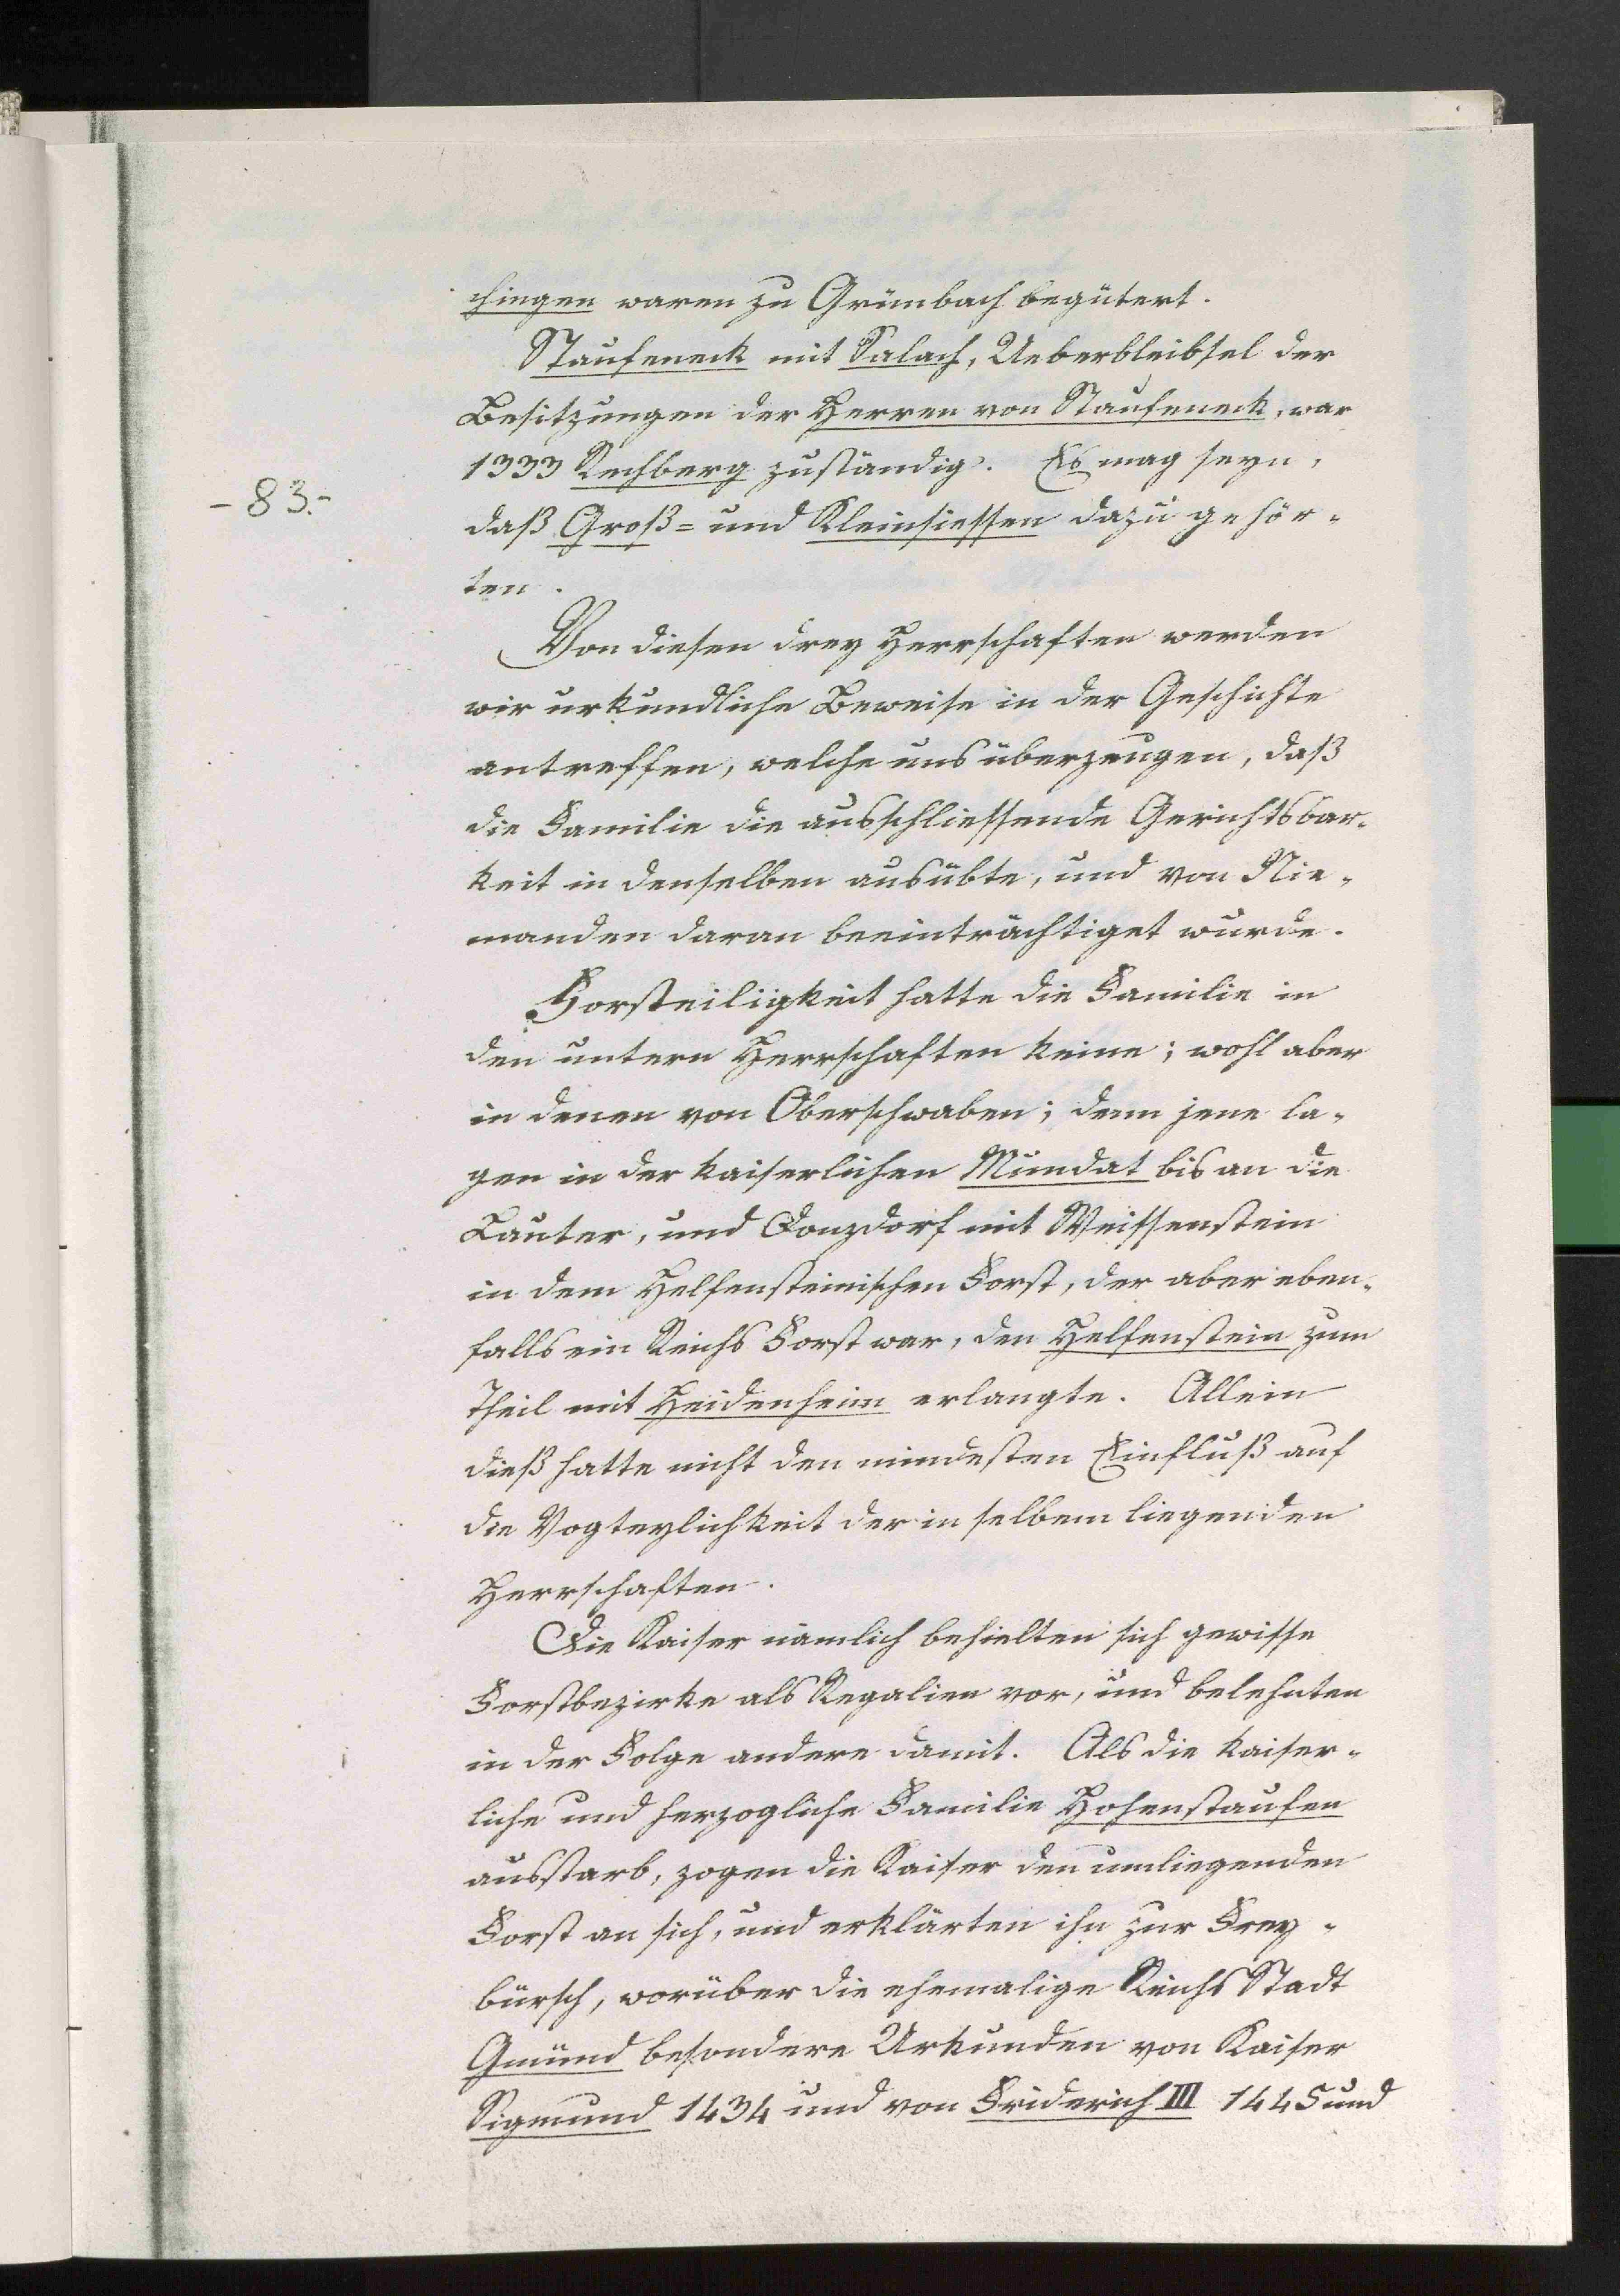 chingen waren zu Grünbach begütert.
Staufeneck mit Salach, Ueberbleibsel der
Besitzungen der Herren von Staufeneck, war
1333 Rechberg zuständig. Es mag seyn,
- 83.-
daß Groß= und Kleinsiessen dazu gehör-
ten.
Von diesen drey Herrschaften werden
wir urkundliche Beweise in der Geschichte
antreffen, welche uns überzeugen, daß
die Familie die ausschliessende Gerichtsbar-
keit in denselben ausübte, und von Nie-
manden daran beeinträchtiget wurde.
Forsteiligkeit hatte die Familie in
den untern Herrschaften keine; wohl aber
in denen von Oberschwaben; denn jene la-
gen in der kaiserlichen Mundat bis an die
Lauter, und Donzdorf mit Weissenstein
in dem Helfensteinischen Forst, der aber eben-
falls ein Reichs Forst war, den Helfenstein zum
Theil mit Heidenheim erlangte. Allein
dieß hatte nicht den mindesten Einfluß auf
die Vogteylichkeit der in selbem liegenden
Herrschaften.
Die Kaiser nämlich behielten sich gewisse
Forstbezirke als Regalien vor, und belehnten
in der Folge andere damit. Als die kaiser-
liche und herzogliche Familie Hohenstaufen
ausstarb, zogen die Kaiser den umliegenden
Forst an sich, und erklärten ihn zur Frey-
bürsch, worüber die ehemalige Reichs Stadt
Gmünd besondere Urkunden von Kaiser
Sigmund 1434 und von Friderich III 1445 und